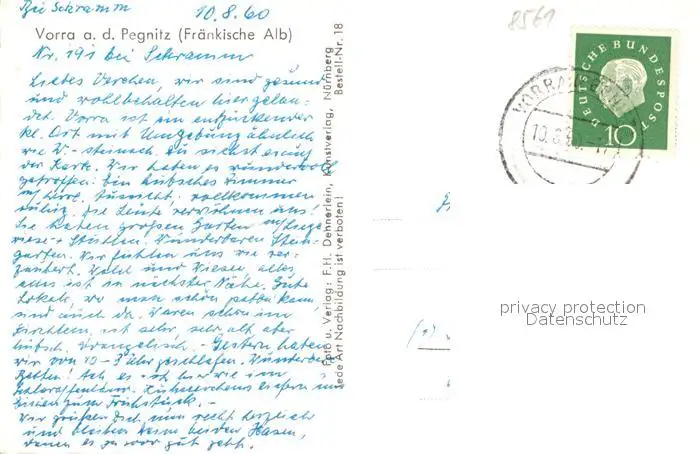 Bei Schramm 10.8.60
8561
Vorra a. d. Pegnitz (Fränkische Alb)
Nr. 191 bei Schramm
Liebes Verchen, wir sind gesund
und wohlbehalten hier gelan-
det. Vorra ist ein entzückender
kl. Ort mit Umgebung ähnlich
wie W-steinach. Du siehst es auf
der Karte. Wir haben es wundervoll
getroffen: ein hübsches Zimmer
Aussicht, vollkommen
ruhig. Die Leute verwöhnen uns!
Sie haben großen Garten m/Liege-
wiese + Stühlen. Wunderbaren Stein-
garten. Wir fühlen uns wie ver-
zaubert. Wald und Wiesen, alles,
alles ist in nächster Nähe. Gute
Lokale, wo man schön essen kann,
sind auch da. Waren schon im
Kirchlein, ist sehr, sehr alt aber
hübsch. Evangelisch. - Gestern haben
wir von 10 - 3 Uhr geschlafen. Wunderbare
Betten! Ach, es ist hier wie im
Schlaraffenland.
zum Frühstück. -
Wir grüßen Dich nun recht herzlich
und bleiben Deine beiden Hasen,
denen es ja so gut geht.
Foto u. Verlag: F. H. Dehnerlein, Kunstverlag, Nürnberg
Jede Art Nachbildung ist verboten! Bestell-Nr. 18
DEUTSCHE BUNDESPOST
10
VORRA
10.8.60
privacy protection
Datenschutz